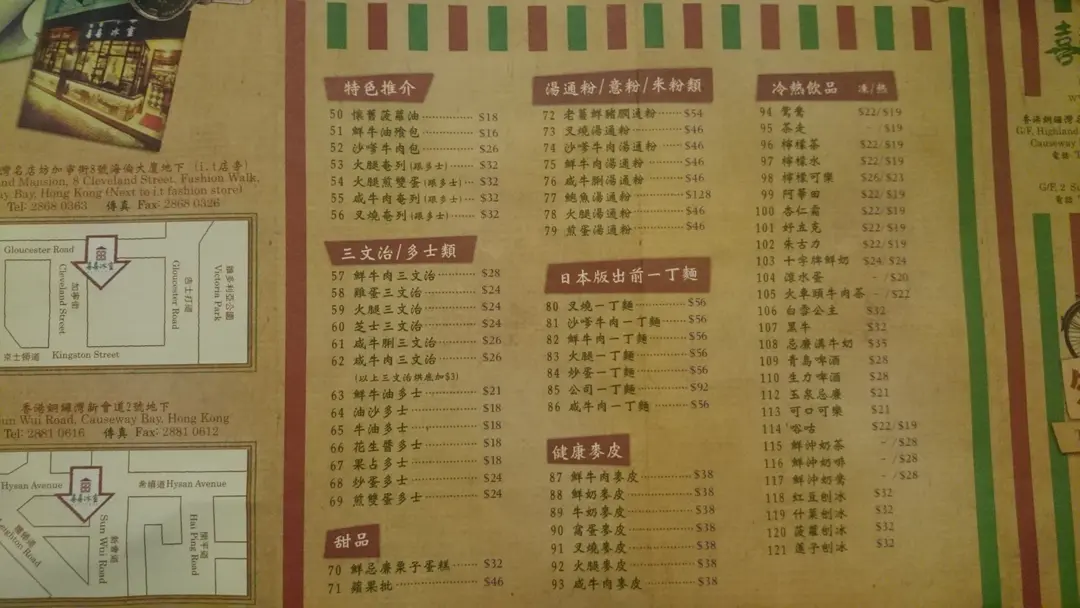 喜喜冰室
灣名店坊加寧街8號海倫大廈地下 (i.t店旁)
nd Mansion, 8 Cleveland Street, Fashion Walk,
ay Bay, Hong Kong (Next to i.t fashion store)
Tel: 2868 0363 傳真 Fax: 2868 0326
Gloucester Road
喜喜冰室
Cleveland Street
加寧街
Gloucester Road
告士打道
Victoria Park
維多利亞公園
京士頓道 Kingston Street
香港銅鑼灣新會道2號地下
Sun Wui Road, Causeway Bay, Hong Kong
Tel: 2881 0616 傳真 Fax: 2881 0612
Hysan Avenue
喜喜冰室
希慎道 Hysan Avenue
Leighton Road
禮頓道
Sun Wui Road
新會道
Hai Ping Road
開平道
特色推介
50 懷舊菠蘿油 $18
51 鮮牛油飱包 $16
52 沙嗲牛肉包 $26
53 火腿奄列 (跟多士) $32
54 火腿煎雙蛋 (跟多士) $32
55 咸牛肉奄列 (跟多士) $32
56 叉燒奄列 (跟多士) $32
三文治/多士類
57 鮮牛肉三文治 $28
58 雞蛋三文治 $24
59 火腿三文治 $24
60 芝士三文治 $24
61 咸牛脷三文治 $26
62 咸牛肉三文治 $26
(以上三文治烘底加$3)
63 鮮牛油多士 $21
64 油沙多士 $18
65 牛油多士 $18
66 花生醬多士 $18
67 果占多士 $18
68 炒蛋多士 $24
69 煎雙蛋多士 $24
甜品
70 鮮忌廉栗子蛋糕 $32
71 蘋果批 $46
湯通粉/意粉/米粉類
72 老薑鮮豬膶通粉 $54
73 叉燒湯通粉 $46
74 沙嗲牛肉湯通粉 $46
75 鮮牛肉湯通粉 $46
76 咸牛脷湯通粉 $46
77 鮑魚湯通粉 $128
78 火腿湯通粉 $46
79 煎蛋湯通粉 $46
日本版出前一丁麵
80 叉燒一丁麵 $56
81 沙嗲牛肉一丁麵 $56
82 鮮牛肉一丁麵 $56
83 火腿一丁麵 $56
84 炒蛋一丁麵 $56
85 公司一丁麵 $92
86 咸牛肉一丁麵 $56
健康麥皮
87 鮮牛肉麥皮 $38
88 鮮奶麥皮 $38
89 牛奶麥皮 $38
90 窩蛋麥皮 $38
91 叉燒麥皮 $38
92 火腿麥皮 $38
93 咸牛肉麥皮 $38
冷熱飲品 凍/熱
94 鴛鴦 $22/$19
95 茶走 - /$19
96 檸檬茶 $22/$19
97 檸檬水 $22/$19
98 檸檬可樂 $26/$23
99 阿華田 $22/$19
100 杏仁霜 $22/$19
101 好立克 $22/$19
102 朱古力 $22/$19
103 十字牌鮮奶 $24/$24
104 滾水蛋 - /$20
105 火車頭牛肉茶 - /$22
106 白雪公主 $32
107 黑牛 $32
108 忌廉溝牛奶 $35
109 青島啤酒 $28
110 生力啤酒 $28
112 玉泉忌廉 $21
113 可口可樂 $21
114 唂咕 $22/$19
115 鮮沖奶茶 - /$28
116 鮮沖奶啡 - /$28
117 鮮沖奶鴦 - /$28
118 紅豆刨冰 $32
119 什菓刨冰 $32
120 菠蘿刨冰 $32
121 蓮子刨冰 $32
喜
香港銅鑼灣
G/F, Highland
Causeway
電話
G/F, 2 S
電話